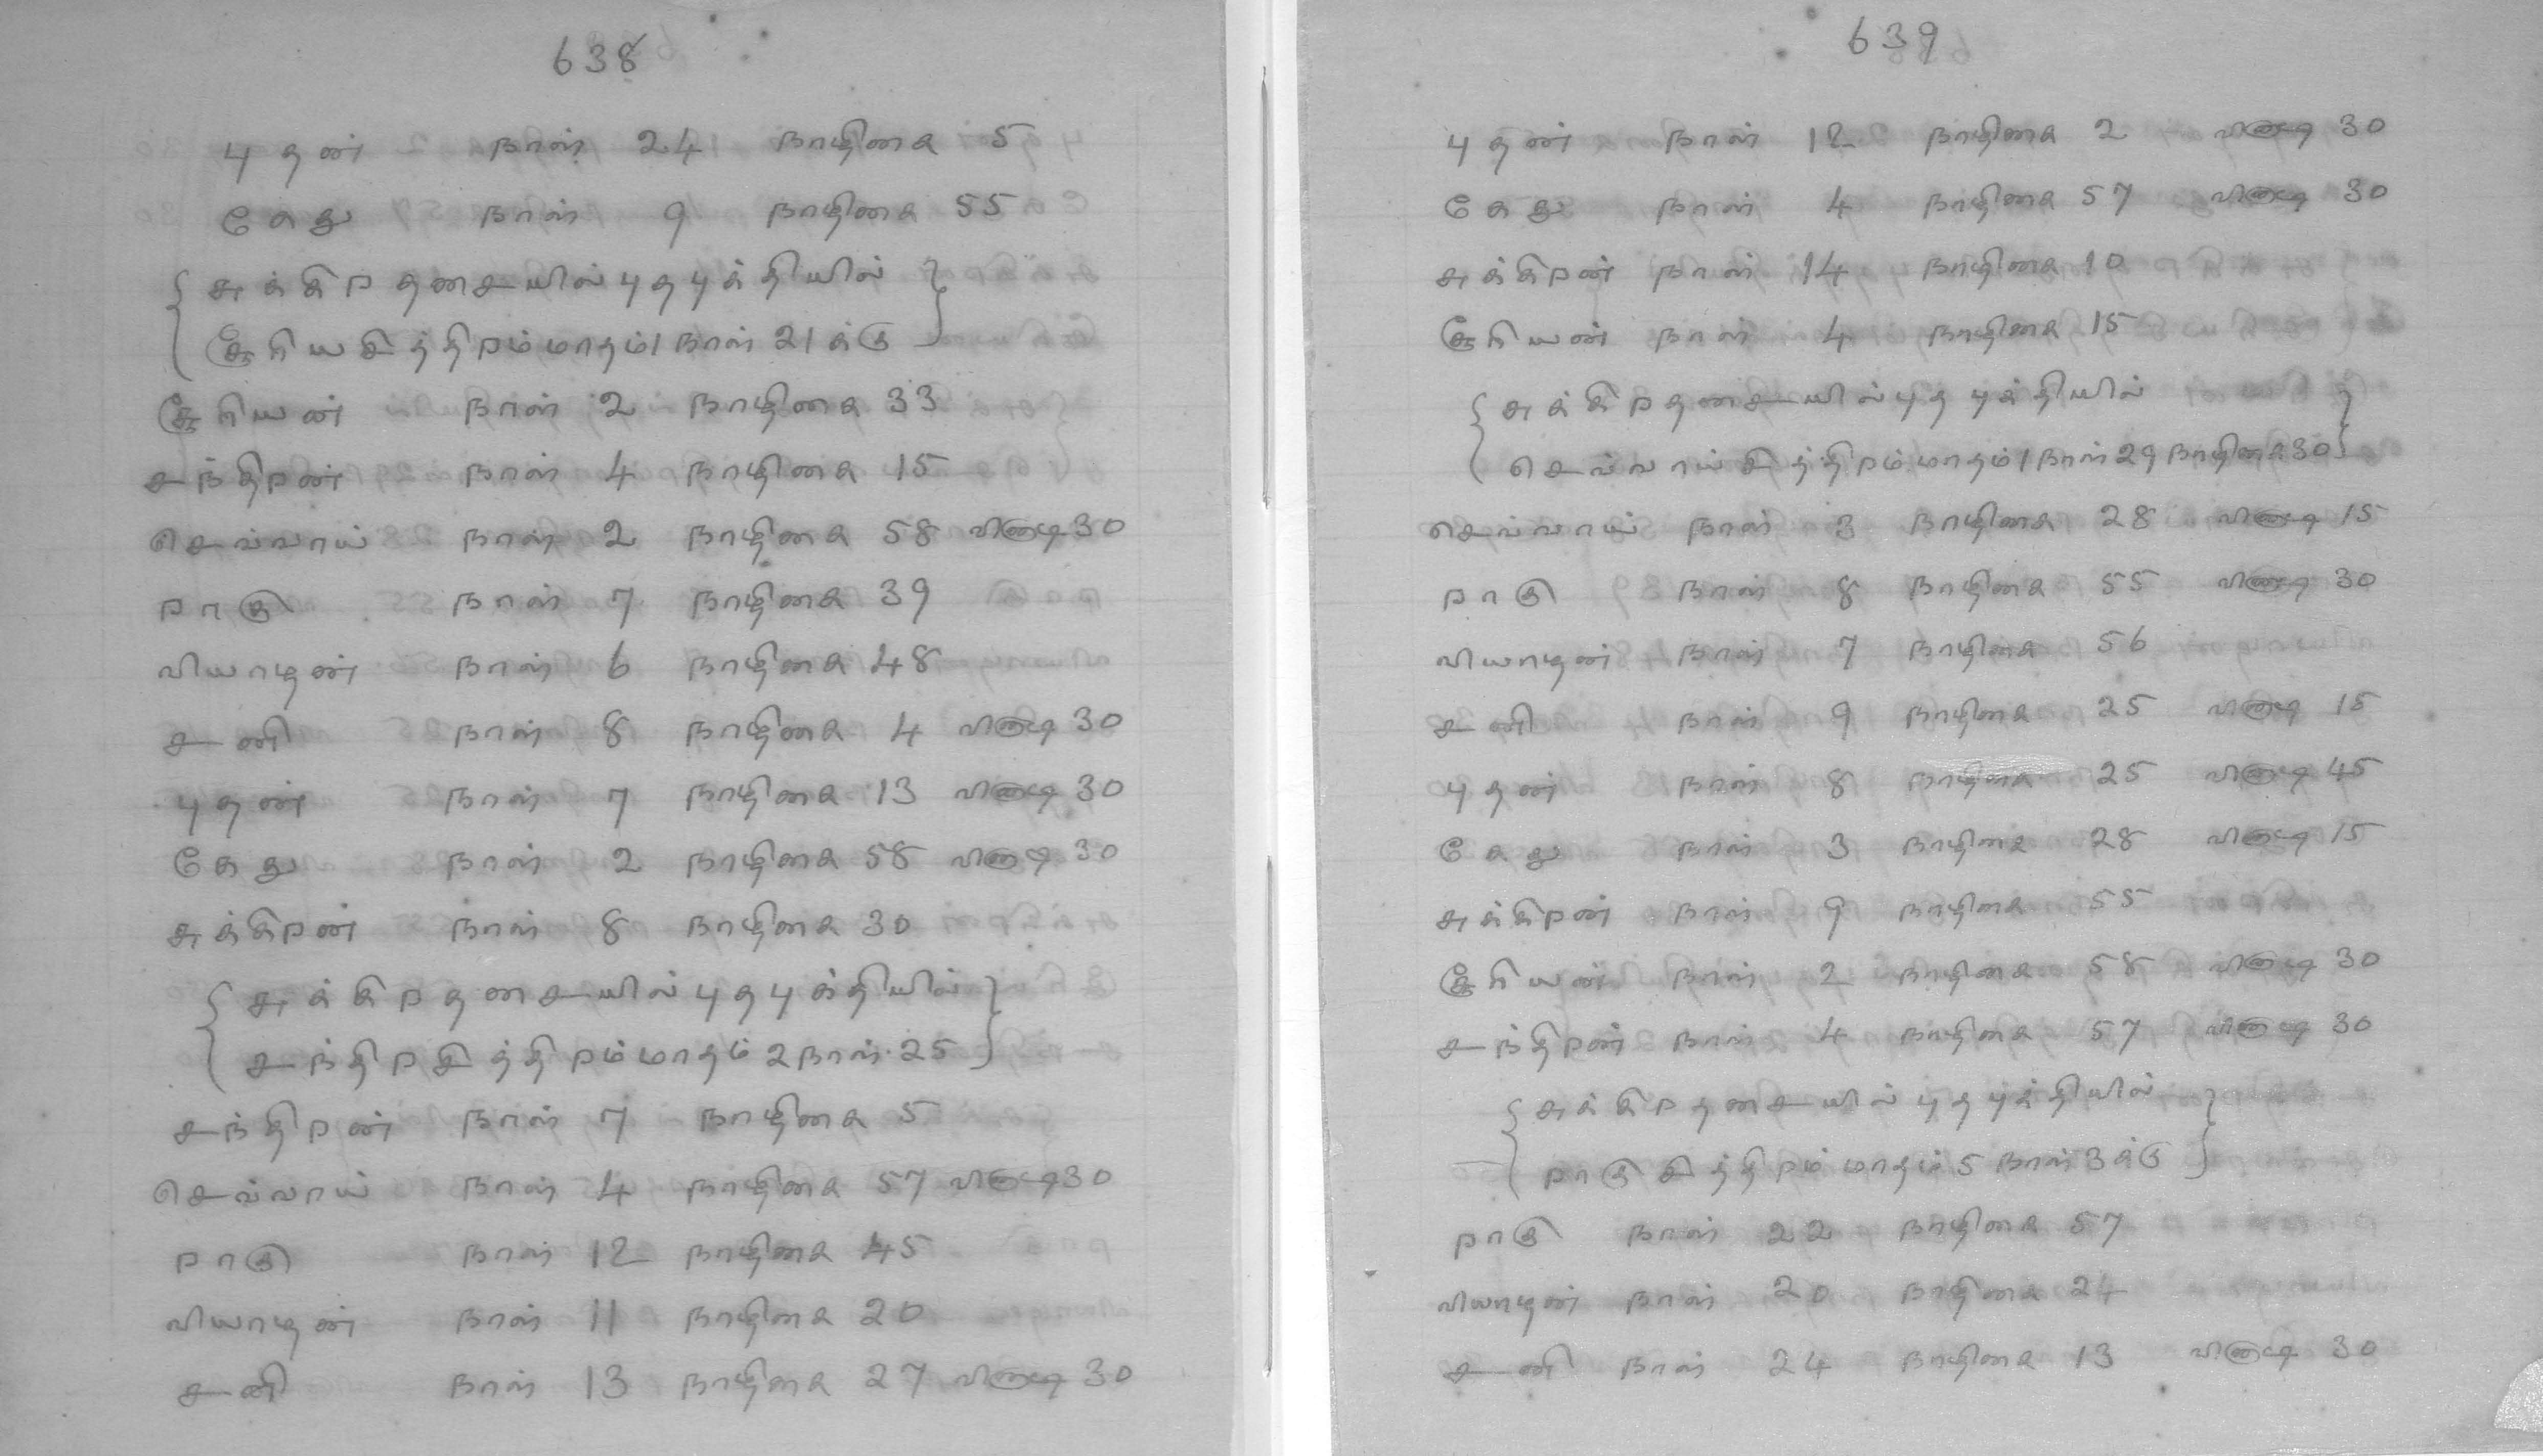 638
புதன் நாள் 24 நாழிகை 5
கேது நாள் 9 நாழிகை 55
{ சுக்கிற தசையில் புத புக்தியில் }
{ சூரிய சித்திறம் மாதம் 1 நாள் 21க்கு }
சூரியன் நாள் 2 நாழிகை 33
சந்திறன் நாள் 4 நாழிகை 15
செவ்வாய் நாள் 2 நாழிகை 58 விநாடி 30
றாகு நாள் 7 நாழிகை 39
வியாழன் நாள் 6 நாழிகை 48
சனி நாள் 8 நாழிகை 4 விநாடி 30
புதன் நாள் 7 நாழிகை 13 விநாடி 30
கேது நாள் 2 நாழிகை 58 விநாடி 30
சுக்கிறன் நாள் 8 நாழிகை 30
{ சுக்கிற தசையில் புத புக்தியில் }
{ சந்திற சித்திறம் மாதம் 2 நாள் 25 }
சந்திறன் நாள் 7 நாழிகை 5
செவ்வாய் நாள் 4 நாழிகை 57 விநாடி 30
றாகு நாள் 12 நாழிகை 45
வியாழன் நாள் 11 நாழிகை 20
சனி நாள் 13 நாழிகை 27 விநாடி 30
639
புதன் நாள் 12 நாழிகை 2 விநாடி 30
கேது நாள் 4 நாழிகை 57 விநாடி 30
சுக்கிறன் நாள் 14 நாழிகை 10
சூரியன் நாள் 4 நாழிகை 15
{ சுக்கிற தசையில் புத புக்தியில் }
{ செவ்வாய் சித்திறம் மாதம் 1 நாள் 29 நாழிகை 30 }
செவ்வாய் நாள் 3 நாழிகை 28 விநாடி 15
றாகு நாள் 8 நாழிகை 55 விநாடி 30
வியாழன் நாள் 7 நாழிகை 56
சனி நாள் 9 நாழிகை 25 விநாடி 15
புதன் நாள் 8 நாழிகை 25 விநாடி 45
கேது நாள் 3 நாழிகை 28 விநாடி 15
சுக்கிறன் நாள் 9 நாழிகை 55
சூரியன் நாள் 2 நாழிகை 58 விநாடி 30
சந்திறன் நாள் 4 நாழிகை 57 விநாடி 30
{ சுக்கிற தசையில் புத புக்தியில் }
{ றாகு சித்திறம் மாதம் 5 நாள் 3க்கு }
றாகு நாள் 22 நாழிகை 57
வியாழன் நாள் 20 நாழிகை 24
சனி நாள் 24 நாழிகை 13 விநாடி 30